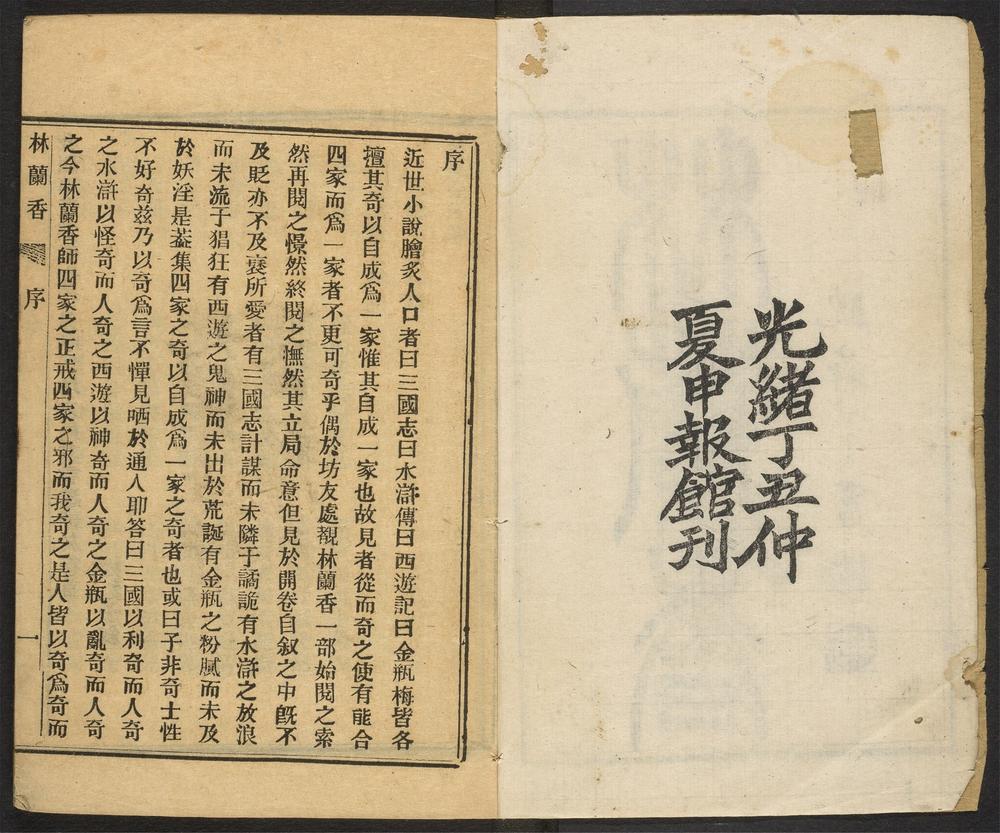 光緒丁丑仲
夏申報館刊
序
近世小說膾炙人口者曰三國志曰水滸傳曰西遊記曰金瓶梅皆各
擅其奇以自成爲一家惟其自成一家也故見者從而奇之使有能合
四家而爲一家者不更可奇乎偶於坊友處覩林蘭香一部始閱之索
然再閱之憬然終閱之憮然其立局命意但見於開卷自叙之中旣不
及貶亦不及襃所愛者有三國志計謀而未隣于譎詭有水滸之放浪
而未流于猖狂有西遊之鬼神而未出於荒誕有金瓶之粉膩而未及
於妖淫是葢集四家之奇以自成爲一家之奇者也或曰子非奇士性
不好奇兹乃以奇爲言不憚見哂於通人耶答曰三國以利奇而人奇
之水滸以怪奇而人奇之西遊以神奇而人奇之金瓶以亂奇而人奇
之今林蘭香師四家之正戒四家之邪而我奇之是人皆以奇爲奇而
林蘭香 序 一